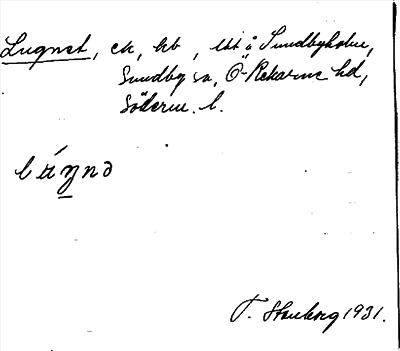 Lugnet, ck, hb, lht å Sundbyholm,
Sundby sn, Ö-Rekarne hd,
Söderm. l.
T. Stenberg 1931.